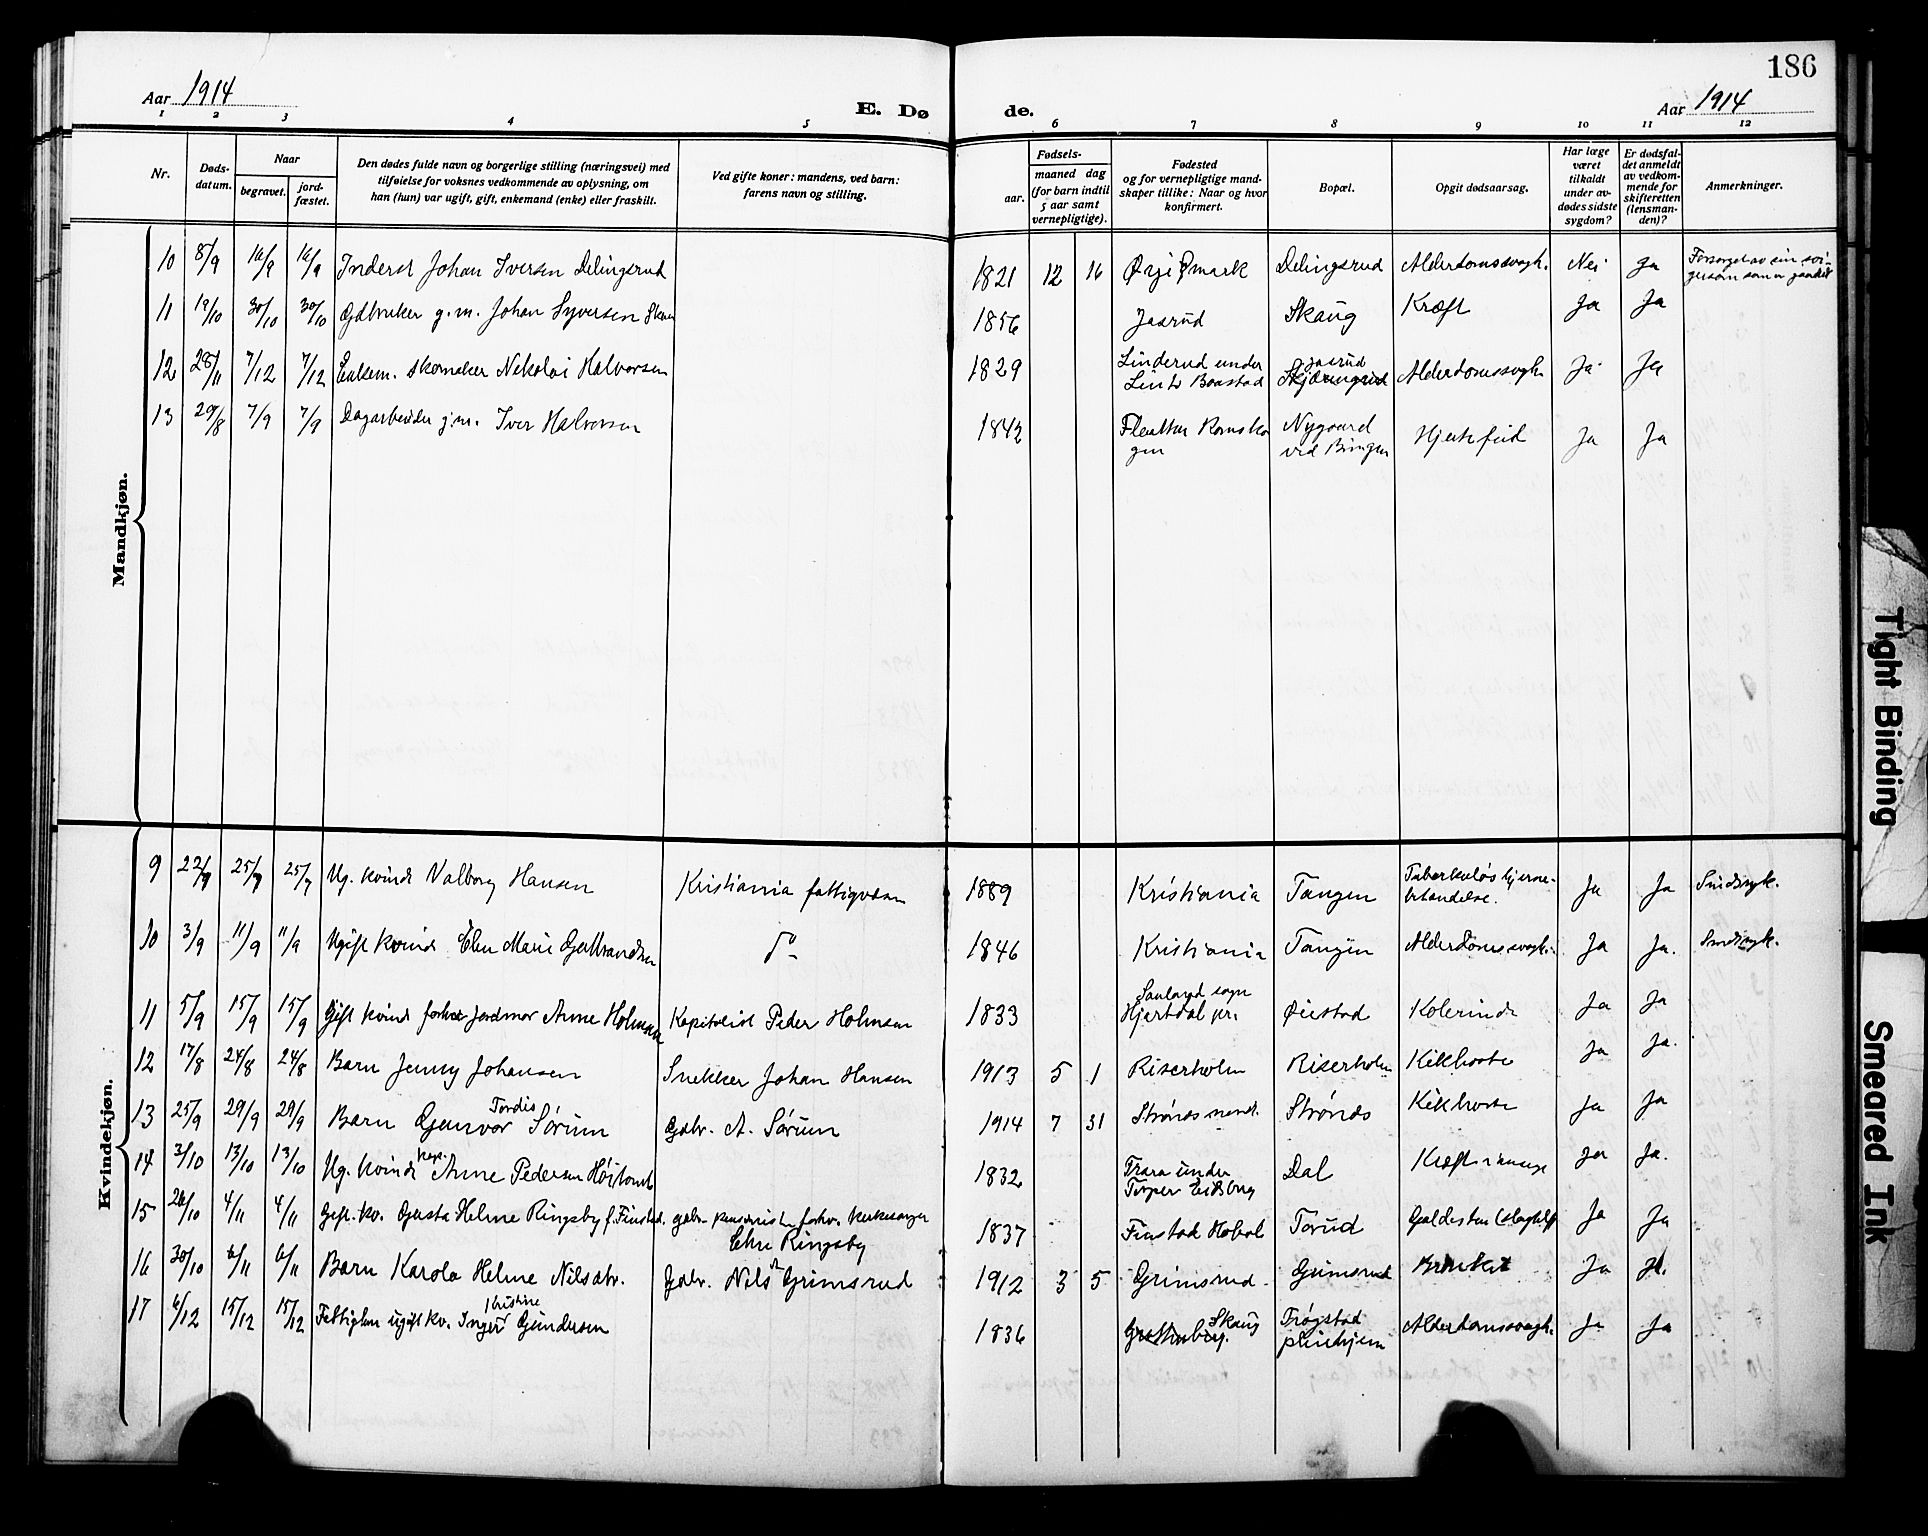 186
Aar 1914
E. Døde.
Aar 1914
1 2 3 4 5 6 7 8 9 10 11 12
Nr.
Døds-
datum.
Naar
begravet.
jord-
fæstet.
Den dødes fulde navn og borgerlige stilling (næringsvei) med
tilføielse for voksnes vedkommende av oplysning, om
han (hun) var ugift, gift, enkemand (enke) eller fraskilt.
Ved gifte koner: mandens, ved barn:
farens navn og stilling.
Fødsels-
aar.
maaned dag
(for barn indtil
5 aar samt
vernepligtige).
Fødested
og for vernepligtige mand-
skaper tillike: Naar og hvor
konfirmert.
Bopæl.
Opgit dødsaarsag.
Har læge
været
tilkaldt
under av-
dødes sidste
sygdom?
Er dødsfal-
det anmeldt
av vedkom-
mende for
skifteretten
(lensman-
den)?
Anmerkninger.
Mandkjøn.
10 8/9 16/9 16/9 Inderst Johan Iversen Delingsrud 1821 12 16 Ørje Ømark Delingsrud Alderdomssvagh. Nei Ja Forsørget av sin svi-
gersøn som er gaardbr
11 19/10 30/10 30/10 Gdbruker g.m. Johan Syversen Skaug 1856 Jaasrud Skaug Kræft Ja Ja
12 28/11 7/12 7/12 Enkem. skomaker Nikolai Halvorsen 1829 Linderud under
Lint Baastad Jaasrud
Alderdomssvagh Ja Ja
13 29/8 7/9 7/9 Dagarbeider g.m. Iver Halvorsen 1842 Romsko
gen Nygaard
ved Bingen Hjertefeil Ja Ja
Kvindekjøn.
9 22/7 25/7 25/7 Ug. kvinde Valborg Hansen Kristiania fattigvæsen 1889 Kristiania Tangen Tuberkuløs hjerne-
betændelse. Ja Ja Sindssyk.
10 3/9 11/9 11/9 Ugift kvinde Elen Marie Gulbrandsen Do 1846 Kristiania Tangen Alderdomssvagh. Ja Ja. Sindssyk.
11 5/9 15/9 15/9 Gift kvinde forhv. jordmor Anne Holmsen Kapitalist Peder Holmsen 1833 Sauland sogn
Hjertdal pr. Øiestad Kolerine Ja Ja
12 17/8 24/8 24/8 Barn Jenny Johansen Snekker Johan Hansen 1913 5 1 Riserholm Riserholm Kikhoste Ja Ja.
13 25/9 29/9 29/9 Barn Gunvor Tordis Sørum Gdbr. A. Sørum 1914 7 31 Strønes Strønes Kikhoste Ja Ja
14 3/10 13/10 13/10 Ug. kvinde Anne Pedersen Høitomt 1832 under
Torper Eidsberg Dal Kræft i Ja Ja.
15 26/10 4/11 4/11 Gift. kv. Gusta Helene Ringsby f. Finstad. gdbr. pensionist forhv. kirkesanger
Ringsby 1837 Finstad Hobøl Torud Galdesten Ja Ja
16 30/10 6/11 6/11 Barn Karola Helene Nilsdtr. Gdbr. Nils Grimsrud 1912 3 5 Grimsrud Grimsrud Ja Ja.
17 6/12 15/12 15/12 Fattiglem ugift kv. Inger Kristine Gundersen 1836 Skaug Trøgstad
pleiehjem Alderdomssvagh. Ja Ja
Tight Binding
Smeared Ink